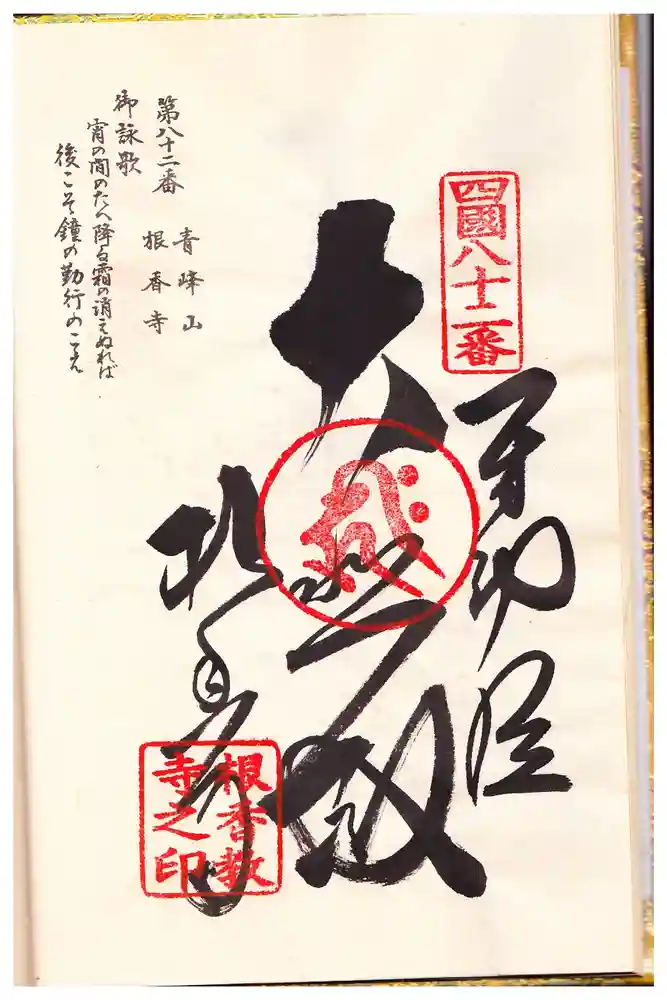 四國八十二番
奉納経
大悲殿
根香寺
根香教
寺之印
第八十二番
青峰山
根香寺
御詠歌
宵の間のたへ降る霜の消えぬれば
後こそ鐘の勤行のこえ